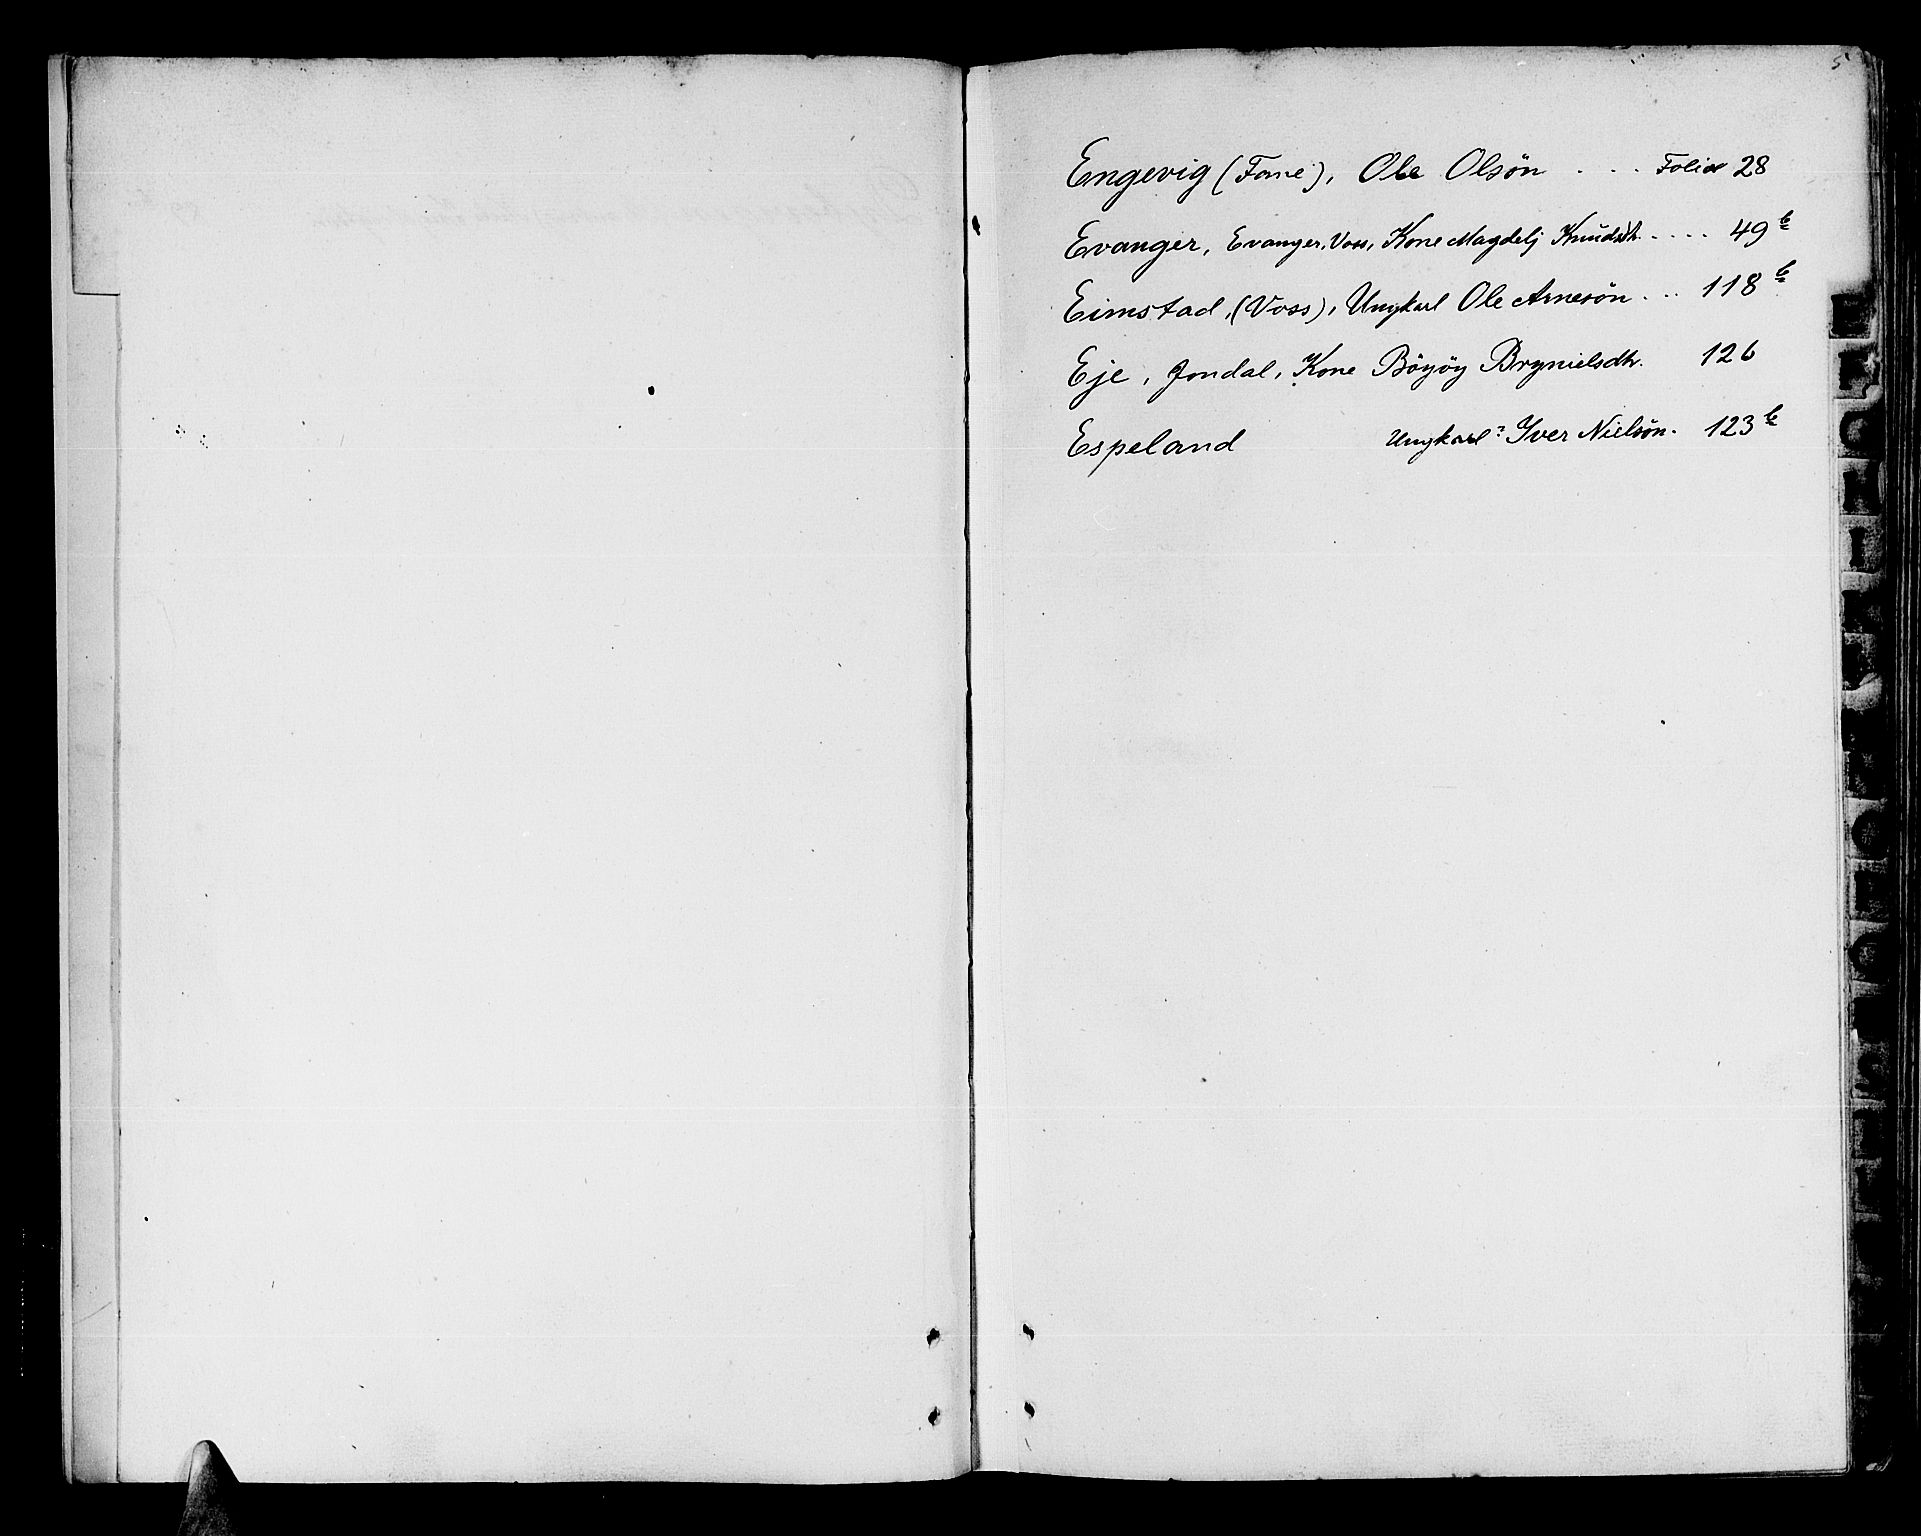 5
Engevig (Fane), Ole Olsön . . . Folio 28
Evanger, Evanger, Voss, Kone Magdelj Knudsdt. . . . . 49 b
Eimstad, (Voss), Ungkarl Ole Arnesön . . . 118 b
Eje, Jondal, Kone Böyöy Brynielsdtr. 126
Espeland Ungkarl? Iver Nielsön. 123 b